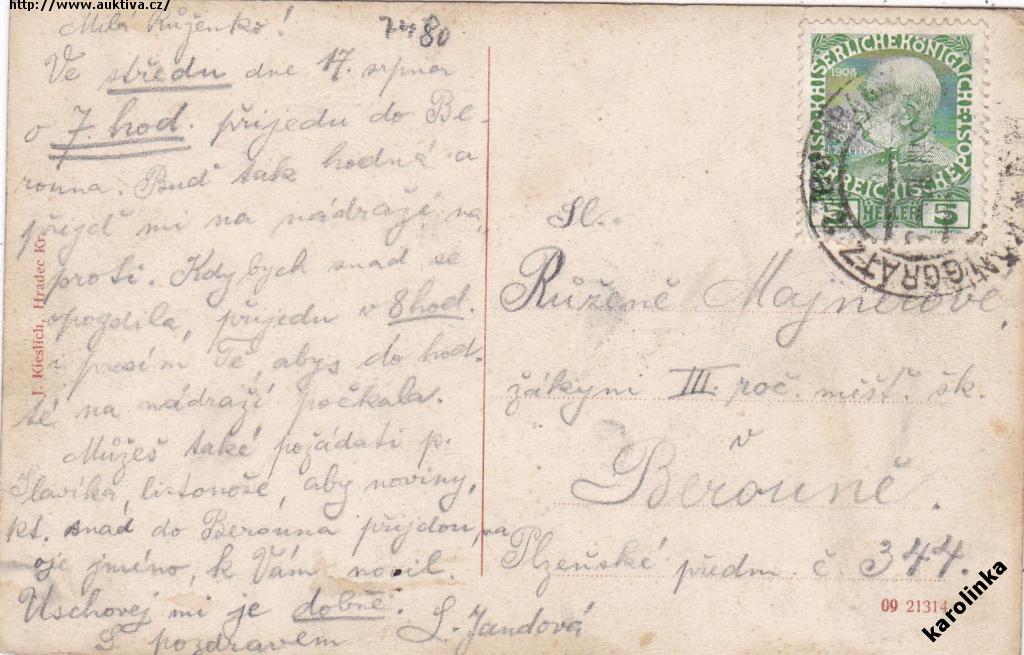 http://www.auktiva.cz/
Milá Růženko!
7480
Ve středu dne 17. srpna
o 7 hod. přijedu do Be-
rouna. Buď tak hodná a
přijď mi na nádraží na
proti. Kdybych snad se
opozdila, přijedu v 8 hod.
i prosím Tě, abys do hod.
té na nádraží počkala.
Můžeš také požádati p.
Slavíka, listonoše, aby noviny,
kt. snad do Berouna přijdou, na
moje jméno, k Vám nosil.
Uschovej mi je dobře.
S pozdravem L. Jandová
J. Kieslich, Hradec Kr.
KAISERLICHE KÖNIGLICHE
ÖSTERREICHISCHE POST
1908
5 HELLER 5
KÖNIGGRATZ
Sl.
Růženě Majnerové,
žákyni III. roč. měšť. šk.
v
Berouně.
Plzeňské předm. č. 344.
09 21314
karolinka